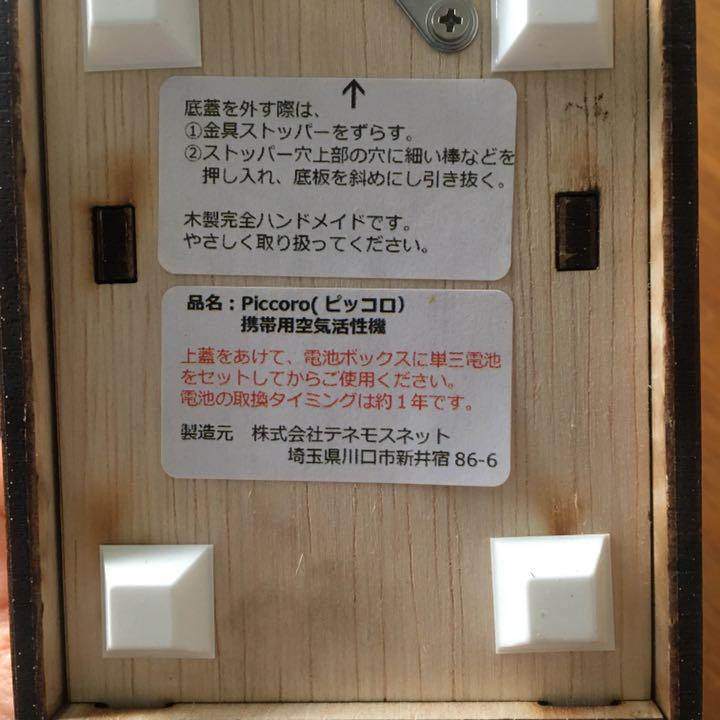 ↑
底蓋を外す際は、
①金具ストッパーをずらす。
②ストッパー穴上部の穴に細い棒などを
押し入れ、底板を斜めにし引き抜く。
木製完全ハンドメイドです。
やさしく取り扱ってください。
品名：Piccoro(ピッコロ）
携帯用空気活性機
上蓋をあけて、電池ボックスに単三電池
をセットしてからご使用ください。
電池の取換タイミングは約１年です。
製造元　株式会社テネモスネット
埼玉県川口市新井宿 86-6